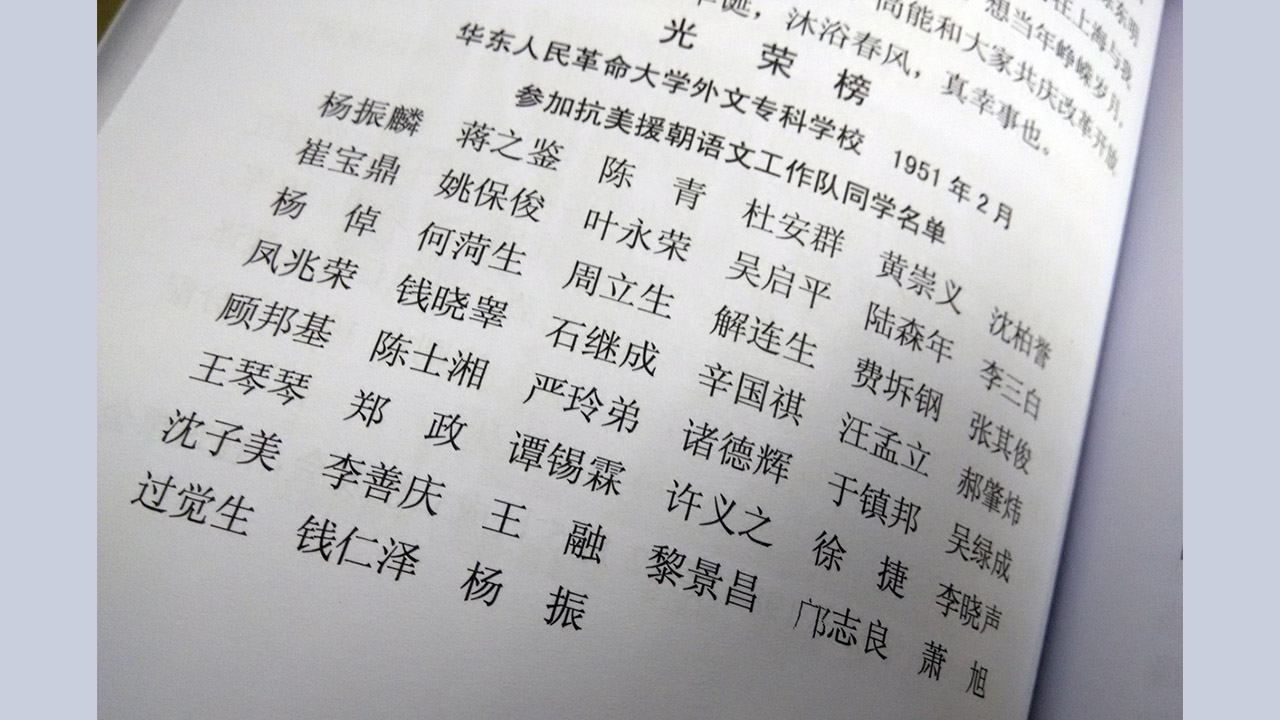 东明
在上海与我
想当年峥嵘岁月，
高能和大家共庆改革开放
诞，沐浴春风，真幸事也。
光 荣 榜
华东人民革命大学外文专科学校 1951年2月
参加抗美援朝语文工作队同学名单
杨振麟 蒋之鉴 陈 青 杜安群 黄崇义 沈柏誉
崔宝鼎 姚保俊 叶永荣 吴启平 陆森年 李三白
杨 倬 何菏生 周立生 解连生 费坼钢 张其俊
凤兆荣 钱晓睪 石继成 辛国祺 汪孟立 郝肇炜
顾邦基 陈士湘 严玲弟 诸德辉 于镇邦 吴绿成
王琴琴 郑 政 谭锡霖 许义之 徐 捷 李晓声
沈子美 李善庆 王 融 黎景昌 邝志良 萧 旭
过觉生 钱仁泽 杨 振